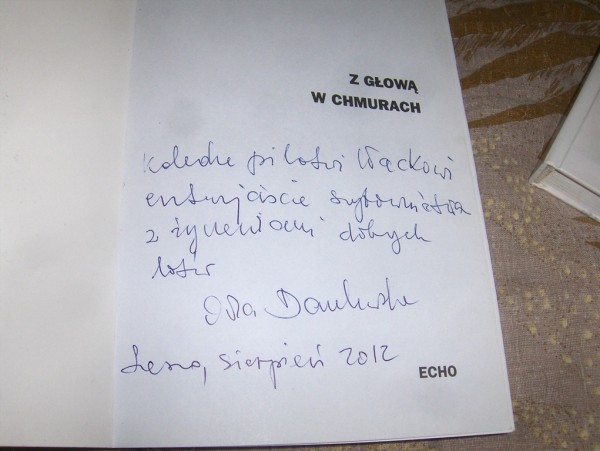 Z GŁOWĄ
W CHMURACH
Koledze pilotowi Wackowi
entuzjaście szybownictwa
z życzeniami dobrych
lotów
Leszno, sierpień 2012
ECHO